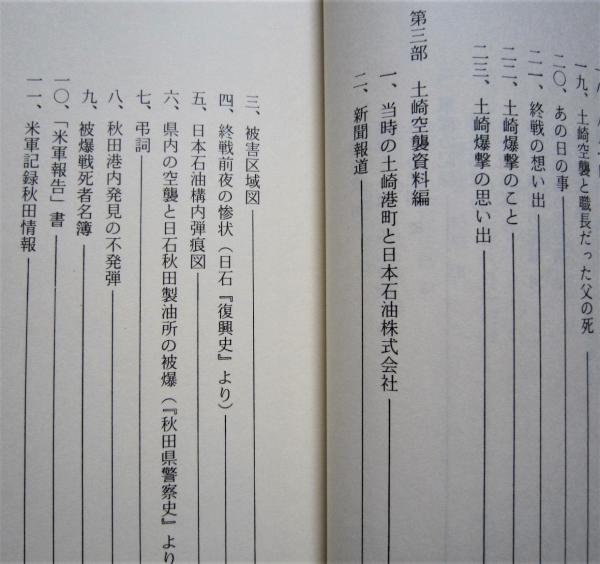 一九、土崎空襲と職長だった父の死
二〇、あの日の事
二一、終戦の想い出
二二、土崎爆撃のこと
二三、土崎爆撃の思い出
第三部 土崎空襲資料編
一、当時の土崎港町と日本石油株式会社
二、新聞報道
三、被害区域図
四、終戦前夜の惨状（日石『復興史』より）
五、日本石油構内弾痕図
六、県内の空襲と日石秋田製油所の被爆（『秋田県警察史』より
七、弔詞
八、秋田港内発見の不発弾
九、被爆戦死者名簿
一〇、「米軍報告」書
一一、米軍記録秋田情報